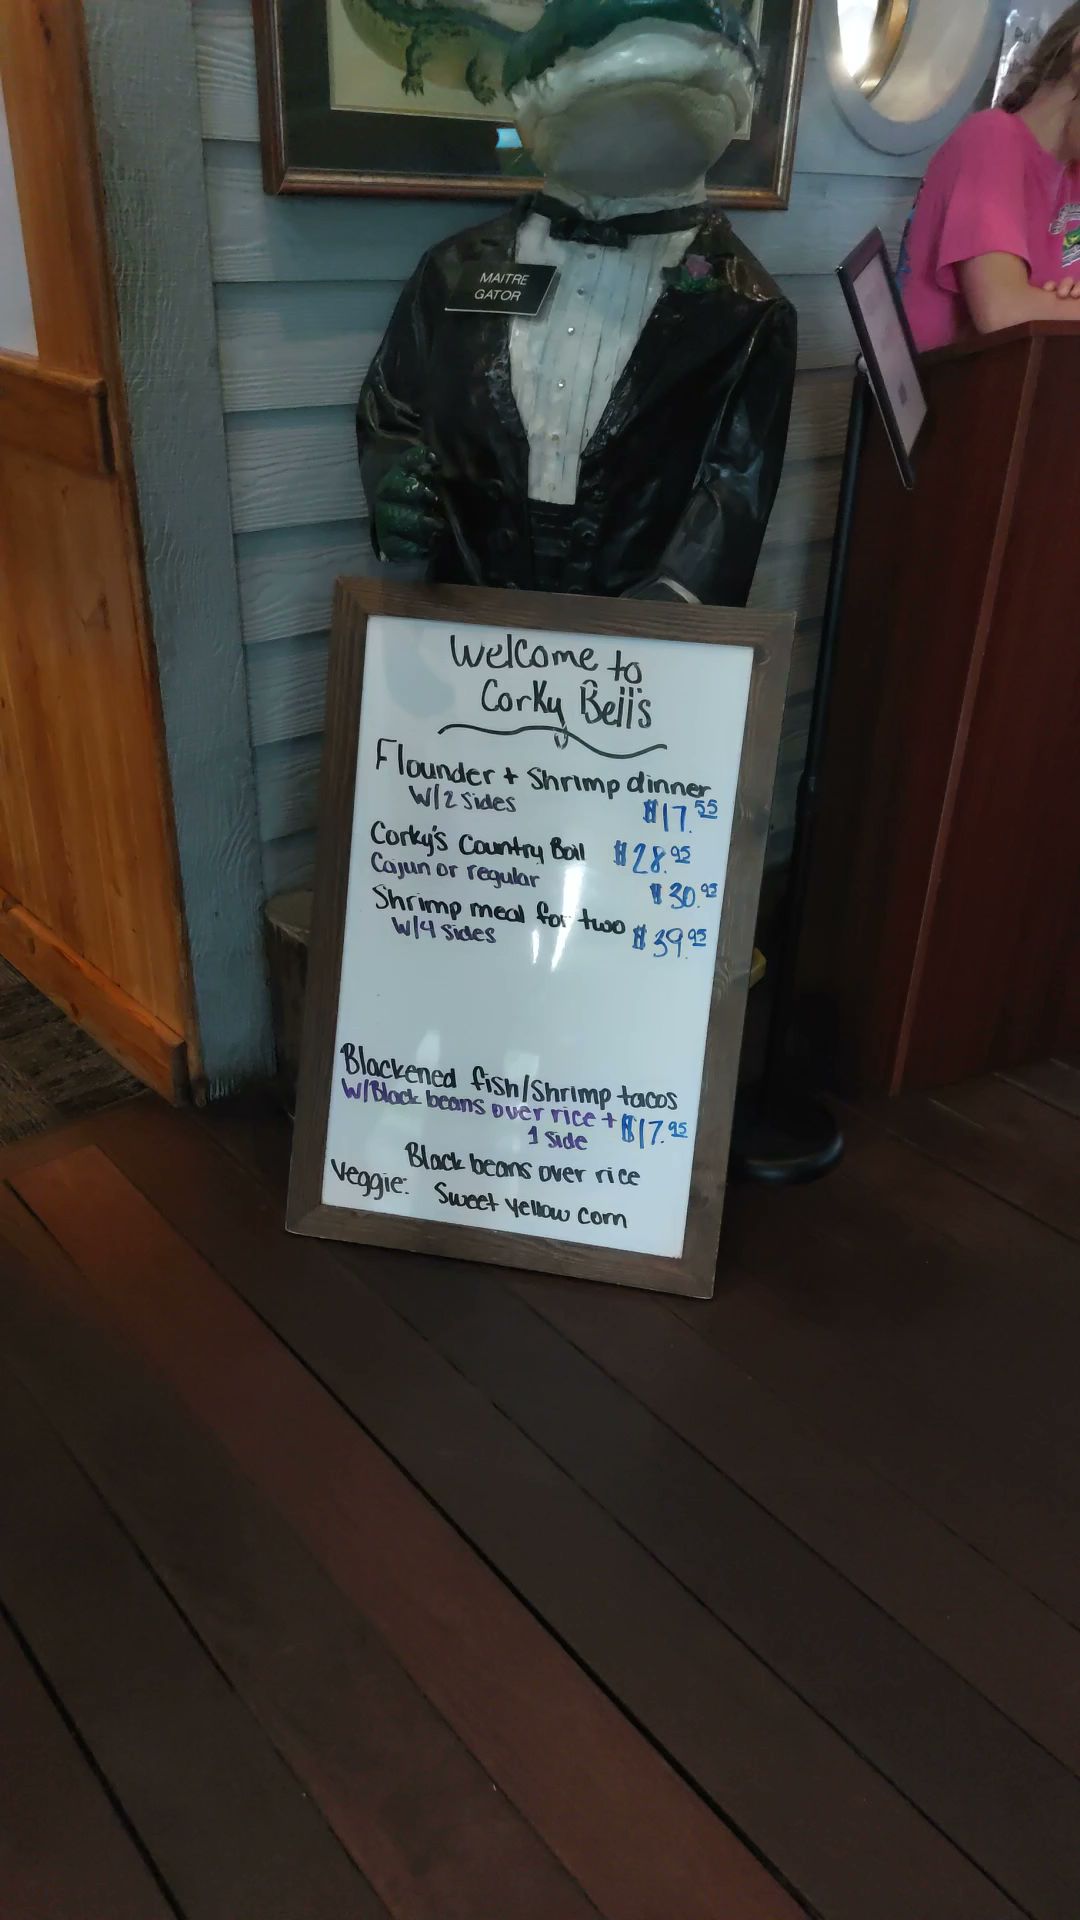 MAITRE
GATOR
Welcome to
Corky Bell's
Flounder + Shrimp dinner
W/2 Sides $17.55
Corky's Country Boil $28.95
Cajun or regular $30.95
Shrimp meal for two
W/4 Sides $39.95
Blackened fish/Shrimp tacos
W/Black beans over rice + $17.95
1 Side
Black beans over rice
Veggie: Sweet Yellow Corn